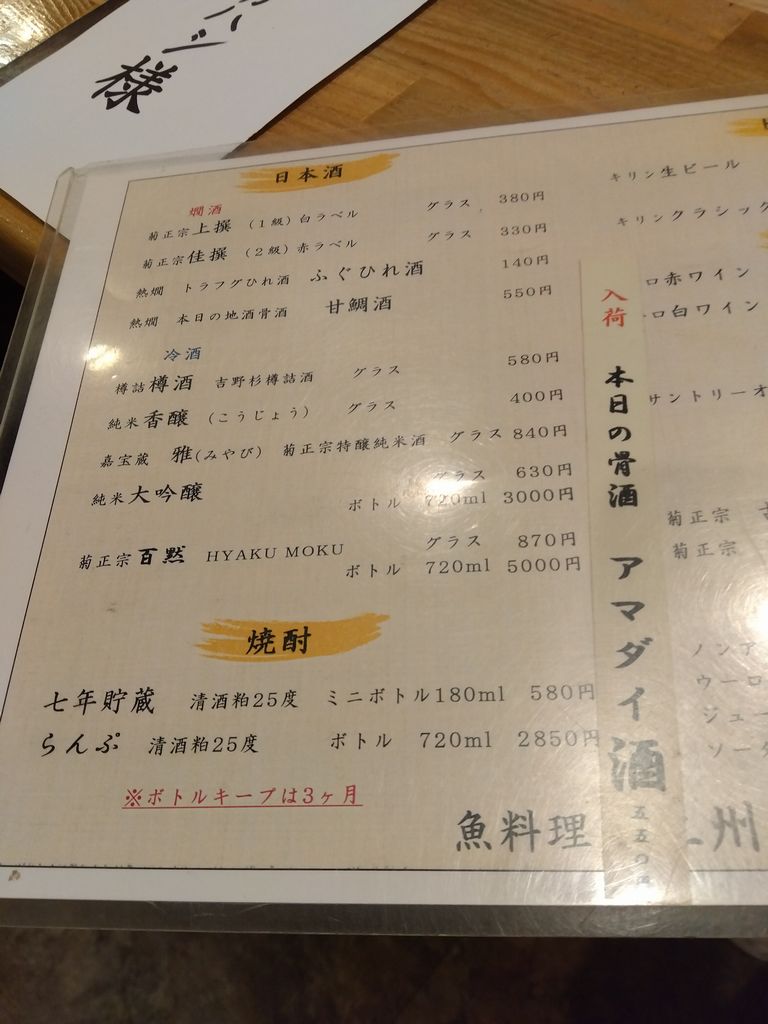 ハシ様
日本酒
燗酒
菊正宗上撰 (1級)白ラベル グラス 380円
菊正宗佳撰 (2級)赤ラベル グラス 330円
熱燗 トラフグひれ酒 ふぐひれ酒 140円
熱燗 本日の地酒骨酒 甘鯛酒 550円
冷酒
樽詰樽酒 吉野杉樽詰酒 グラス 580円
純米香醸 (こうじょう) グラス 400円
嘉宝蔵 雅(みやび) 菊正宗特醸純米酒 グラス 840円
純米大吟醸 グラス 630円
ボトル 720ml 3000円
菊正宗百黙 HYAKU MOKU グラス 870円
ボトル 720ml 5000円
焼酎
七年貯蔵 清酒粕25度 ミニボトル180ml 580円
らんぷ 清酒粕25度 ボトル 720ml 2850円
※ボトルキープは3ヶ月
魚料理
州
入荷 本日の骨酒 アマダイ酒 五五〇円
キリン生ビール
キリンクラシック
ロ赤ワイン
ロ白ワイン
サントリーオ
菊正宗
菊正宗
ノンア
ウーロ
ジュー
ソーダ